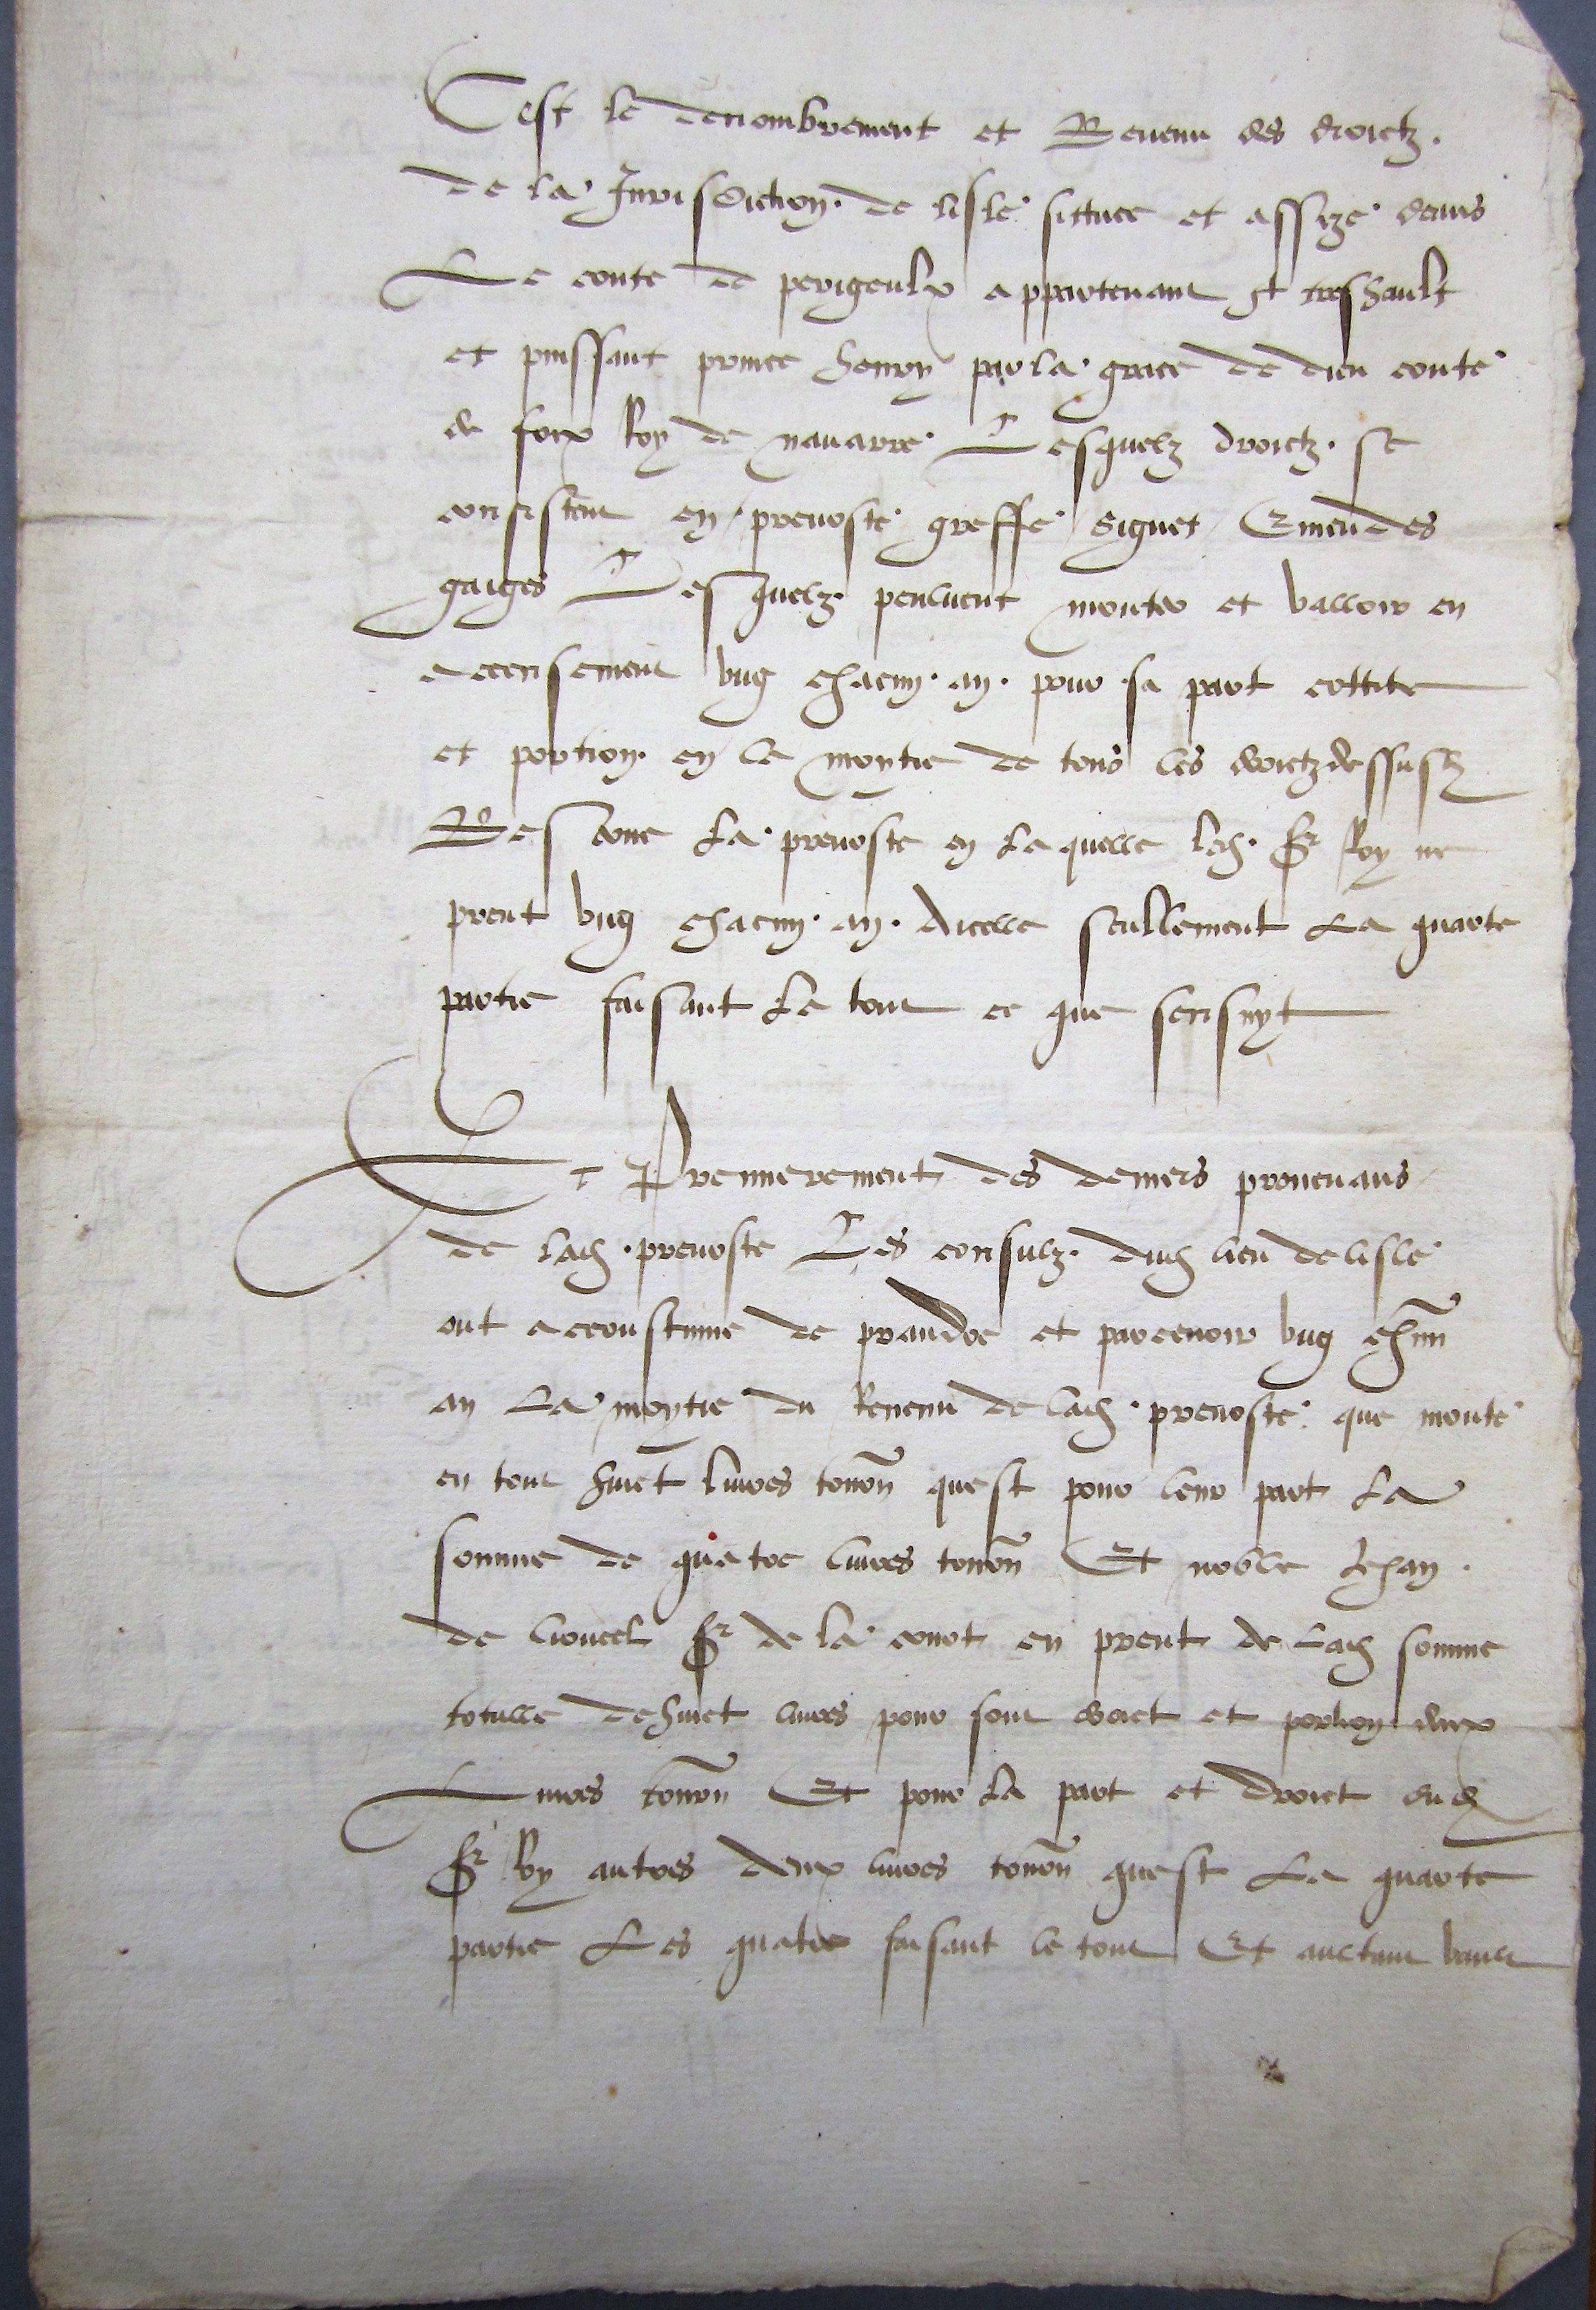 Cest le denombrement et Revenu des droictz
de la Jurisdiction de lisle sittuee et assize dans
Le conte de perigeulx appartenant et treshault
et puissant prince henry par la grace de dieu conte
de foix Roy de navarre Lesquelz droictz se
consistent en prevoste greffe signet Emendes
gaiges Lesquelz peulvent monter et valloir en
accensement ung chacun an pour sa part cottite
et portion en le moytie de tous les droictz dessusd
Reserve La prevoste en laquelle led Sr Roy ne
prent ung chacun an dicelle seullement La quarte
partie faisant Le tout ce que sensuyt
Et Premierement des deniers provenans
de lad prevoste Les consulz dud lieu de lisle
ont accoustume de prandre et parcevoir ung chun
an La moytie du Revenu de lad prevoste que monte
en tout huict livres tourn quest pour leur part La
somme de quatre livres tourn Et noble Jehan
de Sr de la court en prent de Lad somme
totalle de huict livres pour sont droict et portion deux
Livres tourn Et pour la part et droict dud
Sr Roy autres deux livres tourn quest La quarte
partie Les quatre faisant le tout Et aultant vault